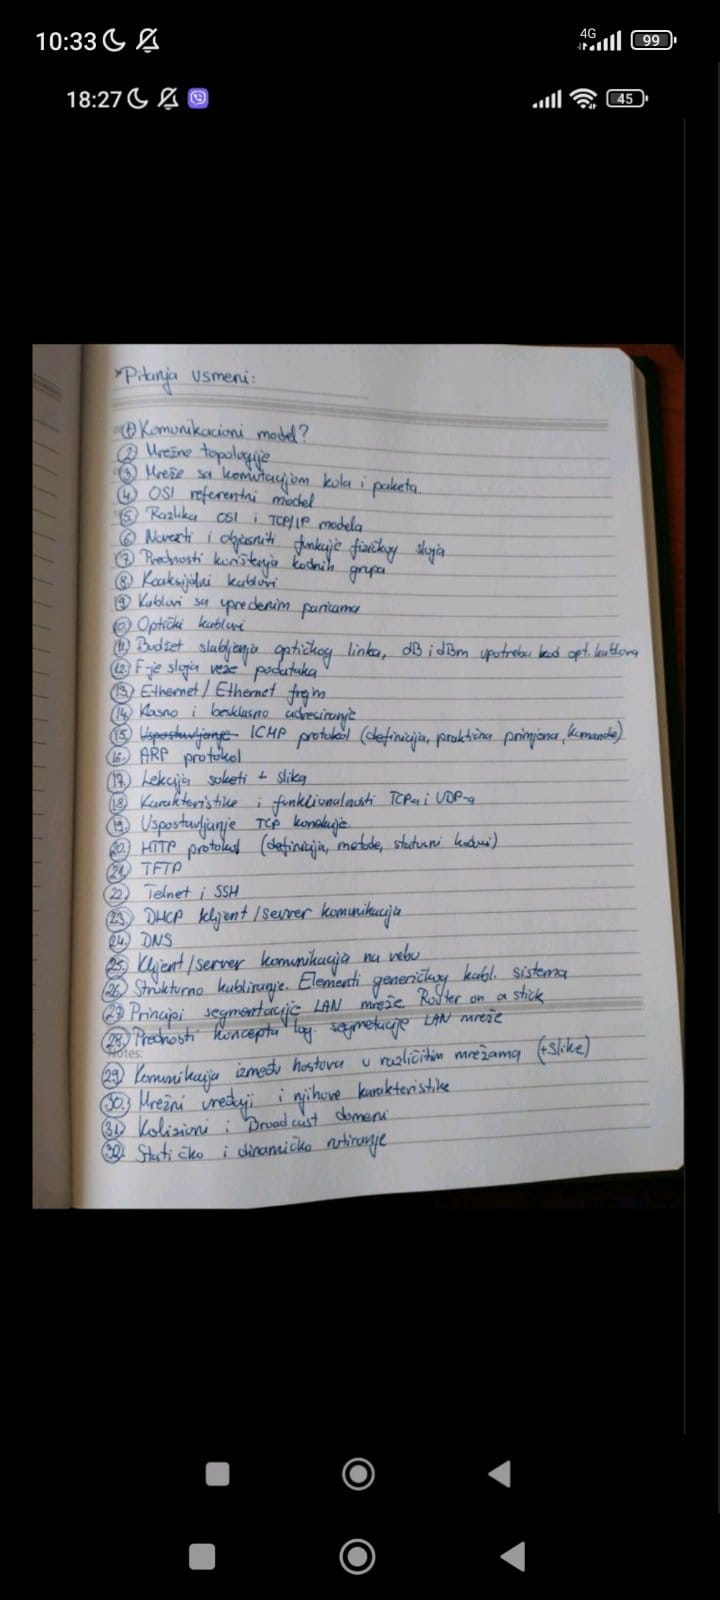 10:33
4G
99
18:27
45
*Pitanja usmeni:
1 Komunikacioni model?
2 Mrežne topologije
3 Mreže sa komutacijom kola i paketa.
4 OSI referentni model
5 Razlika OSI i TCP/IP modela
6 Navesti i objasniti funkcije fizičkog sloja
7 Prednosti korištenja kodnih grupa
8 Koaksijalni kablovi
9 Kablovi sa upredenim paricama
10 Optički kablovi
11 Budžet slabljenja optičkog linka, dB i dBm upotreba kod opt. kablova
12 F-je sloja veze podataka
13 Ethernet / Ethernet frejm
14 Klasno i besklasno adresiranje
15. Uspostavljanje ICMP protokol (definicija, praktična primjena, komande)
16. ARP protokol
17. Lekcija soketi + slika
18 Karakteristike i funkcionalnosti TCPa i UDP-a
19. Uspostavljanje TCP konekcije.
20. HTTP protokol (definicija, metode, statusni kodovi)
21. TFTP
22. Telnet i SSH
23. DHCP klijent / server komunikacija
24. DNS
25. Klijent / server komunikacija na vebu
26. Strukturno kabliranje. Elementi generičkog kabl. sistema
27. Principi segmentacije LAN mreže. Router on a stick
28. Prednosti koncepta log. segmetacije LAN mreže
Notes:
29. Komunikacija između hostova u različitim mrežama (+slike)
30. Mrežni uređaji i njihove karakteristike
31. Kolizioni i Broadcast domeni
32. Statičko i dinamičko rutiranje